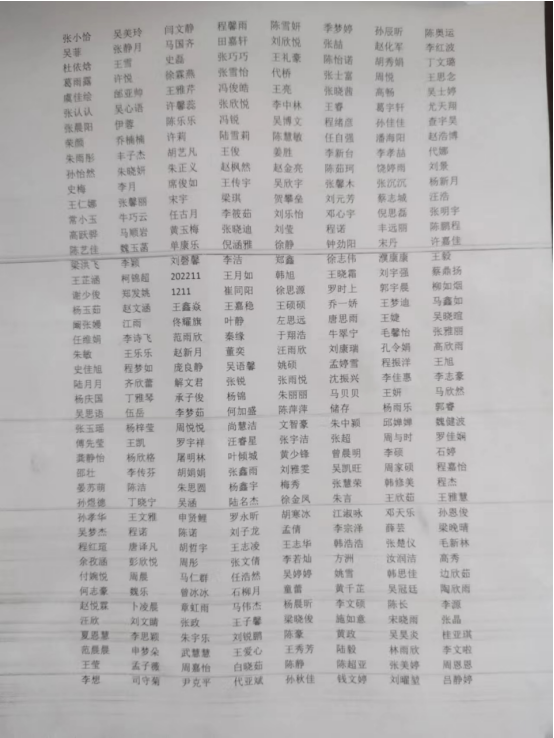 张小恰 吴美玲 闫文静 程馨雨 陈雪妍 季梦婷 孙辰昕 陈奥运
吴菲 张静月 马国齐 田嘉轩 刘欣悦 张喆 赵化军 李红波
杜依焓 王雪 史磊 张巧巧 王礼豪 陈怡诺 胡秀娟 丁文璐
葛雨露 许悦 徐霖燕 张雪怡 代桥 张士富 周悦 王思念
虞佳绘 邱亚帅 王雅芹 冯俊皓 王亮 张晓茜 高畅 吴士婷
张认认 吴心语 许馨蕊 张欣悦 李中林 王睿 葛宇轩 尤天翔
张晨阳 伊蓉 陈乐乐 冯锐 吴博文 程绪彦 孙佳佳 查宇昊
荣颜 乔楠楠 许莉 陆雪莉 陈慧敏 任自强 潘海阳 赵浩博
朱雨彤 丰子杰 胡艺凡 王俊 姜胜 李新台 李孝喆 代娜
孙怡然 朱晓妍 朱正义 赵枫然 赵金亮 陈茹珂 饶婷雨 刘景
史梅 李月 席俊如 王传宇 吴欣宇 张馨木 张沉沉 杨新月
王仁娜 张馨丽 宋宇 梁琪 贺攀垒 刘元芳 蔡志城 汪浩
常小玉 牛巧云 任古月 李筱茹 刘乐怡 邓心宇 倪思磊 张明宇
高跃骅 马顺岩 黄玉梅 张晓迪 刘莹 程诺 丰远丽 陈鹏程
陈艺佳 魏玉菡 单康乐 倪涵雅 徐静 钟劲阳 宋丹 许嘉佳
梁洪飞 李颖 刘磬馨 李洁 郑鑫 徐志伟 濮康康 王毅
王芷涵 柯锦超 202211 王月如 韩旭 王晓霜 刘宇强 蔡鼎扬
谢少俊 郑发姚 1211 崔同阳 徐思源 罗时上 郭宇晨 柳如烟
杨玉茹 赵文涵 王鑫焱 王嘉稳 王硕硕 乔一妍 王梦迪 马鑫如
阚张嫚 江雨 佟耀旗 叶静 左思远 唐思雨 王婕 吴晓暄
任维娟 李诗飞 范雨欣 秦缘 于翔浩 牛翠宁 毛馨怡 张雅丽
朱敏 王乐乐 赵新月 董奕 汪雨欣 刘康瑞 孔令娟 高欣雨
史佳旭 程梦如 庞良静 吴语馨 姚硕 孟婷雪 程振洋 王旭
陆月月 齐欣蕾 解文君 张锐 张雨悦 沈振兴 李佳惠 李志豪
杨庆国 丁雅琴 承子俊 杨锦 朱丽丽 马贝贝 王妍 马欣然
吴思语 伍岳 李梦茹 何加盛 陈萍萍 储存 杨雨乐 郭睿
张玉瑶 杨梓莹 周悦悦 尚慧洁 文智豪 朱中颍 邱婵婵 魏健波
傅先莹 王凯 罗宇祥 汪睿星 张宇洁 张超 周与时 罗佳娴
龚静怡 杨欣格 屠明林 叶倾城 黄少锋 曾晨明 李硕 石婷
邵壮 李传芬 胡娟娟 张鑫雨 刘雅雯 吴凯旺 周家硕 程嘉怡
晏苏丽 陈洁 朱思圆 杨鑫宇 梅秀 张慧荣 韩修美 程杰
孙煜德 丁晓宁 吴涵 陆名杰 徐金风 朱言 王欣茹 王雅慧
孙孝华 王文雅 申贤鲤 罗永昕 胡寒冰 江淑咏 邓天乐 孙恩俊
吴梦杰 程诺 陈诺 刘子龙 孟倩 李宗泽 薛芸 梁晚璃
程红瑄 唐译凡 胡哲宇 王志凌 王志华 韩浩浩 张楚仪 毛新林
余孜涵 彭欣悦 周彤 张文倩 李若灿 方洲 汝润洁 高秀
付婉悦 周晨 马仁群 任浩然 吴婷婷 姚雪 韩思佳 边欣茹
何志豪 魏乐 曾冰冰 石柳月 童蕾 黄千芷 吴冠廷 陶欣雨
赵悦霖 卜凌晨 章虹雨 马伟杰 杨晨昕 李文硕 陈长 李源
汪欣 刘文婧 张政 王子馨 梁晓俊 施如意 宋晓雨 张晶
夏恩慧 李思颖 朱宇乐 刘锐鹏 陈豪 黄政 吴昊炎 桂亚琪
范晨晨 申梦朵 武慧慧 王爱心 王秀芳 陆毅 林雨欣 李文啦
王莹 孟子薇 周嘉怡 白晓茹 陈静 陈超亚 张美婷 周恩恩
李想 司守菊 尹克平 代亚斌 孙秋佳 钱文婷 刘曜堃 吕静婷